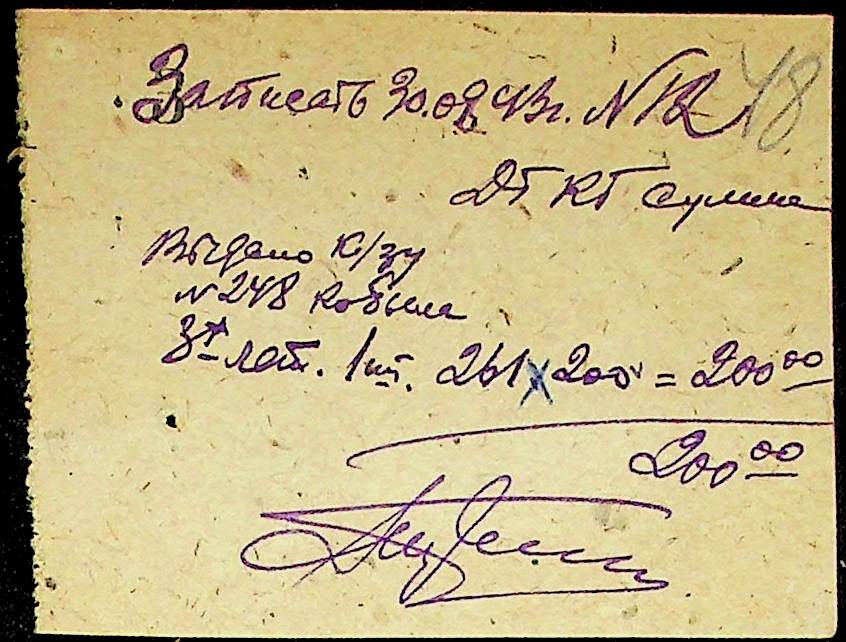 Записать 30.08.43г. N 12 48
Дт Кт сумма
Выдано к/зу
N 248 кобыла
3х лет. 1шт. 261 х 200 = 200 00
200 00